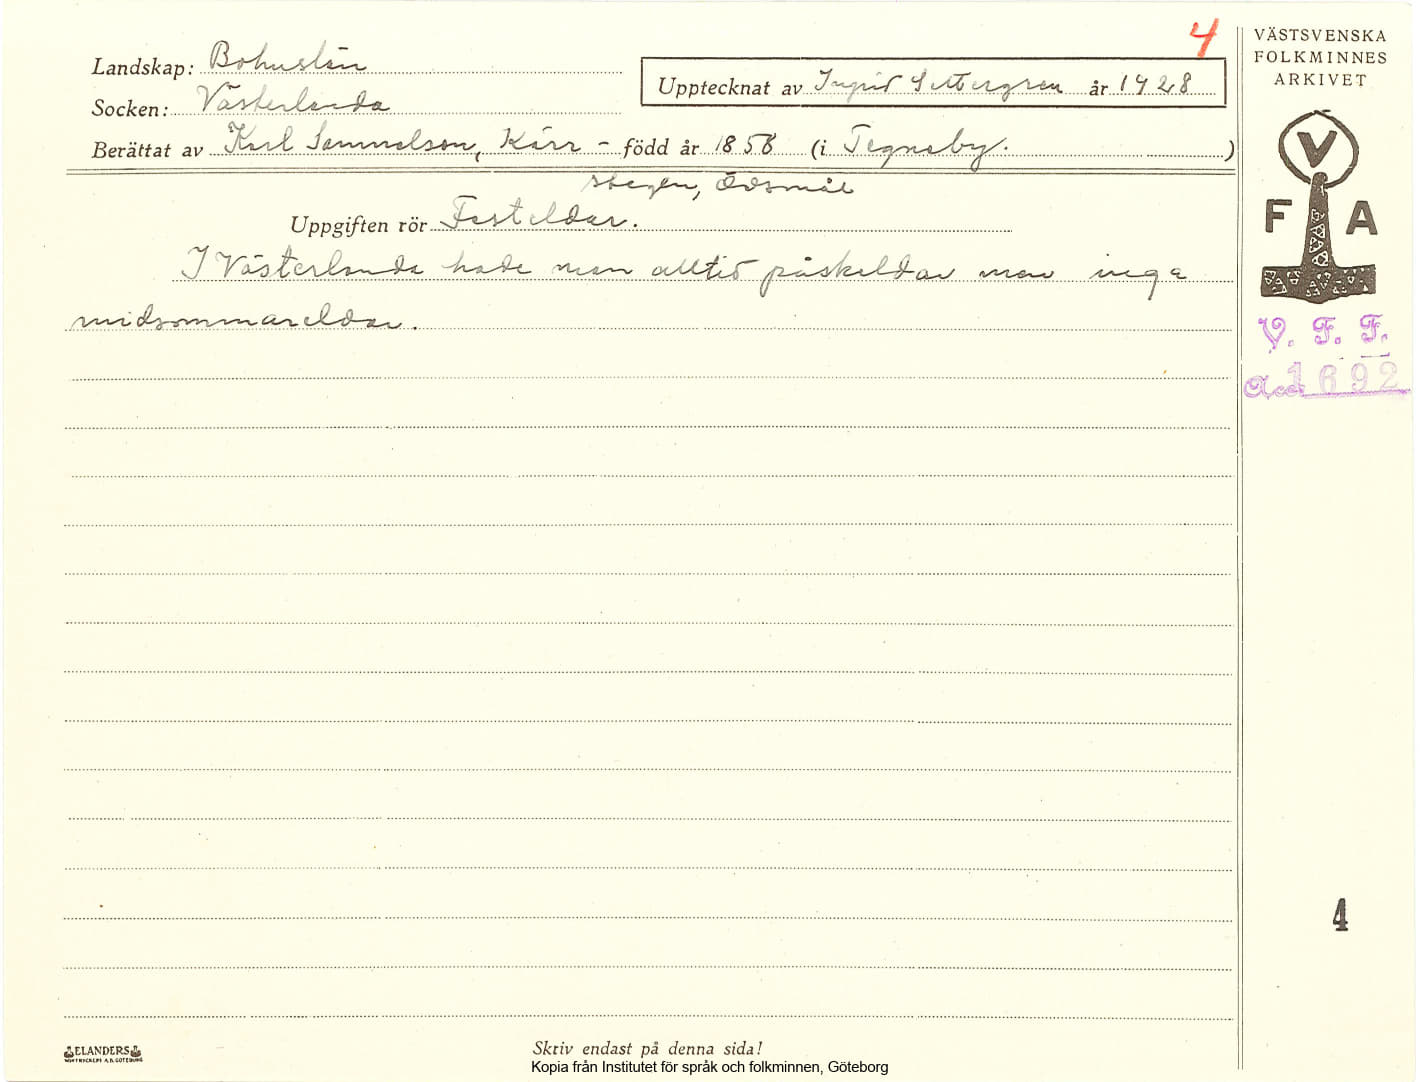 4
VÄSTSVENSKA
FOLKMINNES
ARKIVET
Landskap: Bohuslän
Upptecknat av Ingrid Settergren år 1928
Socken: Västerlanda
Berättat av Karl Samuelson, Kärr - född år 1858 (i Tegneby.)
stegen, Ödsmål
Uppgiften rör Festeldar.
I Västerlanda hade man alltid påskeldar men inga
midsommareldar.
V
F A
V. F. F.
Acc. 1692
4
ELANDERS
Skriv endast på denna sida!
Kopia från Institutet för språk och folkminnen, Göteborg